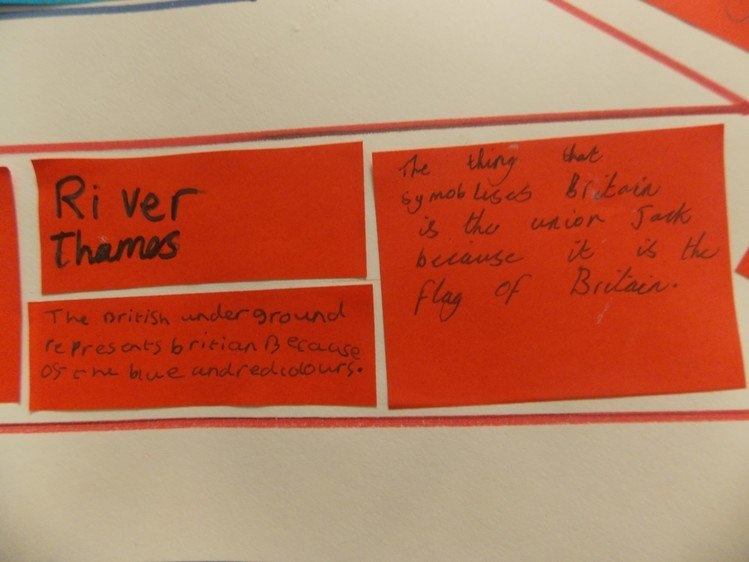 River
Thames
The British underground
represents britian Because
of the blue and red colours.
The thing that
symoblises Britain
is the union Jack
because it is the
flag of Britain.